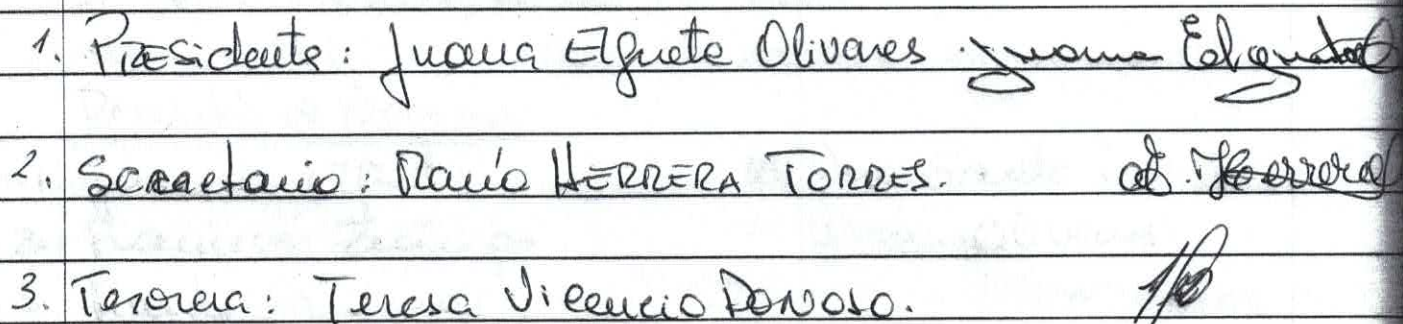 1. Presidente: Juana Elgueta Olivares. Juana Elgueta
2. Secretario: Mario HERRERA TORRES. Herrera
3. Tesorera: Teresa Vicencio DONOSO.